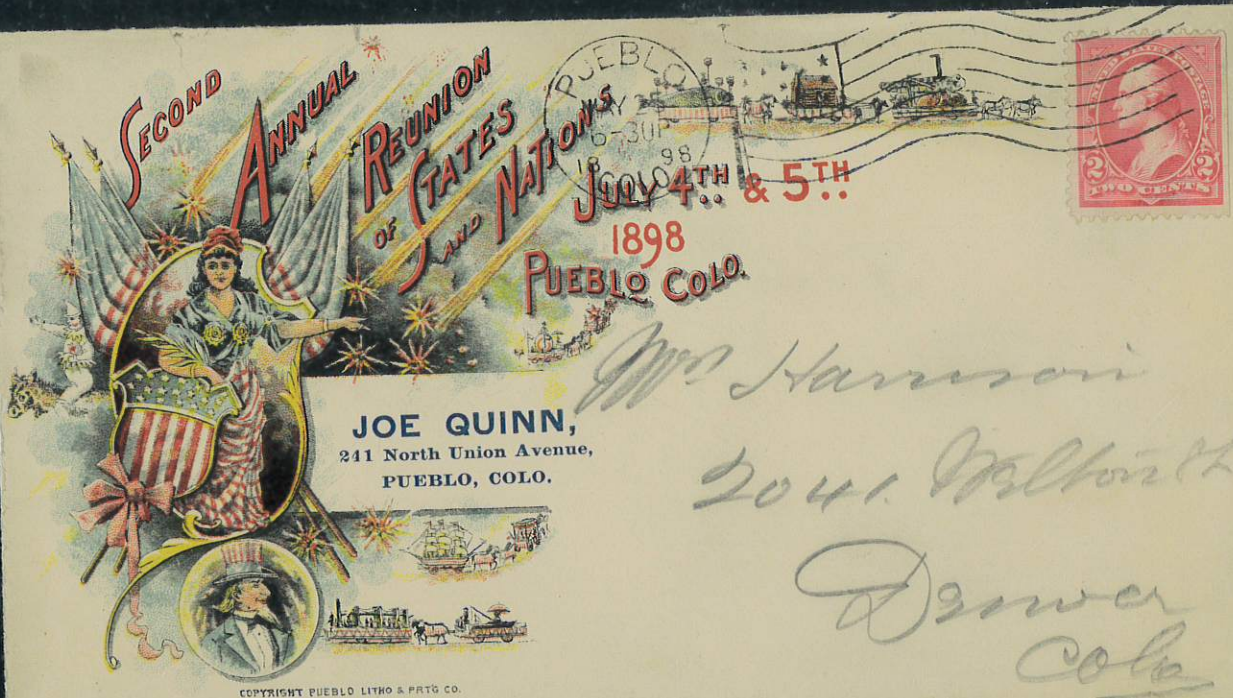 SECOND
ANNUAL
REUNION
OF STATES
AND NATIONS
JULY 4TH & 5TH
1898
PUEBLO COLO.
PUEBLO
6-30P
98
COLO
UNITED STATES POSTAGE
2 2
TWO CENTS
JOE QUINN,
241 North Union Avenue,
PUEBLO, COLO.
Harrison
2041.
Denver
Colo
COPYRIGHT PUEBLO LITHO & PRT'G CO.